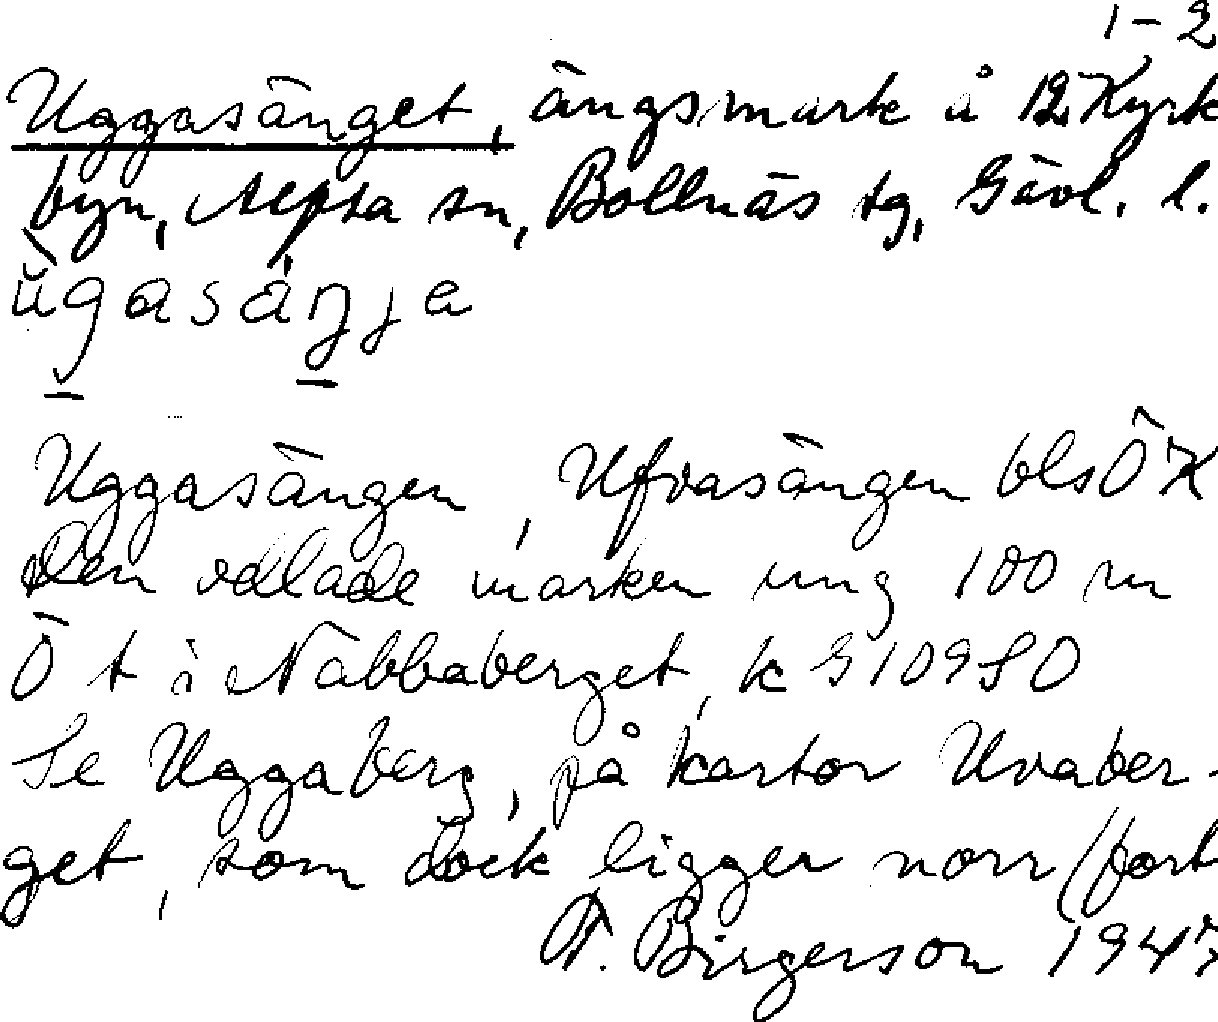 1-2
Uggasänget, ängsmark å 12 Kyrk
byn, Alfta sn, Bollnäs tg, Gävl. l.
Uggasängen, Ufvasängen bls Ö K
Den odlade marken ung 100 m
Ö t i Näbbaberget, k G 109 SO
Se Uggaberg, på kartor Uvaber-
get, som dock ligger norr (fort
F. Birgerson 1947